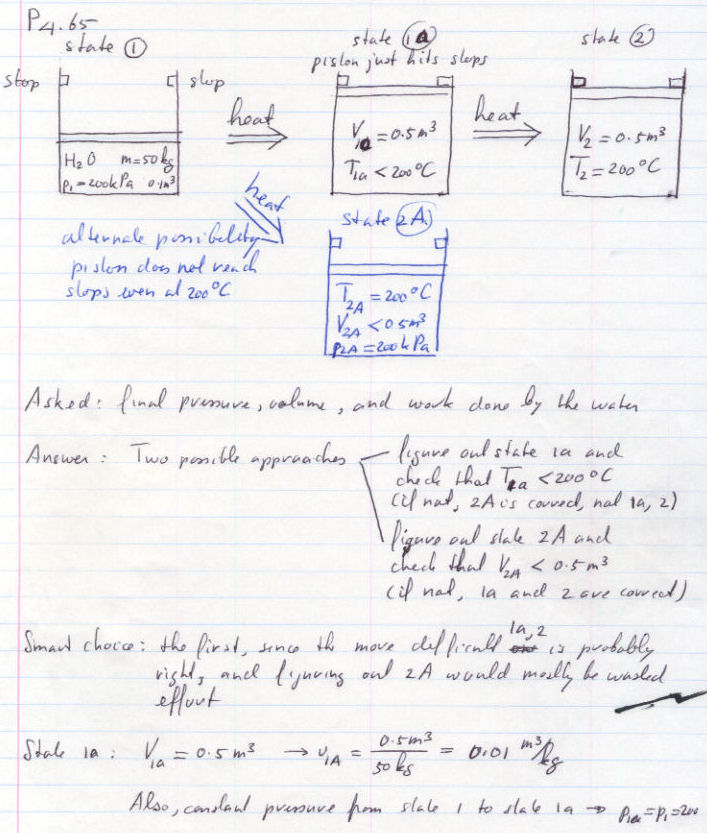 P4.65
state ①
stop
stop
H₂O m=50kg
p₁=200kPa 0.1m³
heat
state 1a
piston just hits stops
V₁a = 0.5m³
T₁a < 200°C
heat
state ②
V₂ = 0.5m³
T₂ = 200°C
heat
alternate possibility
piston does not reach
stops even at 200°C
state 2A
T₂A = 200°C
V₂A < 0.5m³
p₂A = 200kPa
Asked: final pressure, volume, and work done by the water
Answer: Two possible approaches
figure out state 1a and
check that T₁a < 200°C
(if not, 2A is correct, not 1a, 2)
figure out state 2A and
check that V₂A < 0.5m³
(if not, 1a and 2 are correct)
Smart choice: the first, since the more difficult 1a,2 is probably
right, and figuring out 2A would mostly be wasted
effort
State 1a: V₁a = 0.5m³ → v₁A = 0.5m³/50kg = 0.01 m³/kg
Also, constant pressure from state 1 to state 1a → p₁a = p₁ = 200